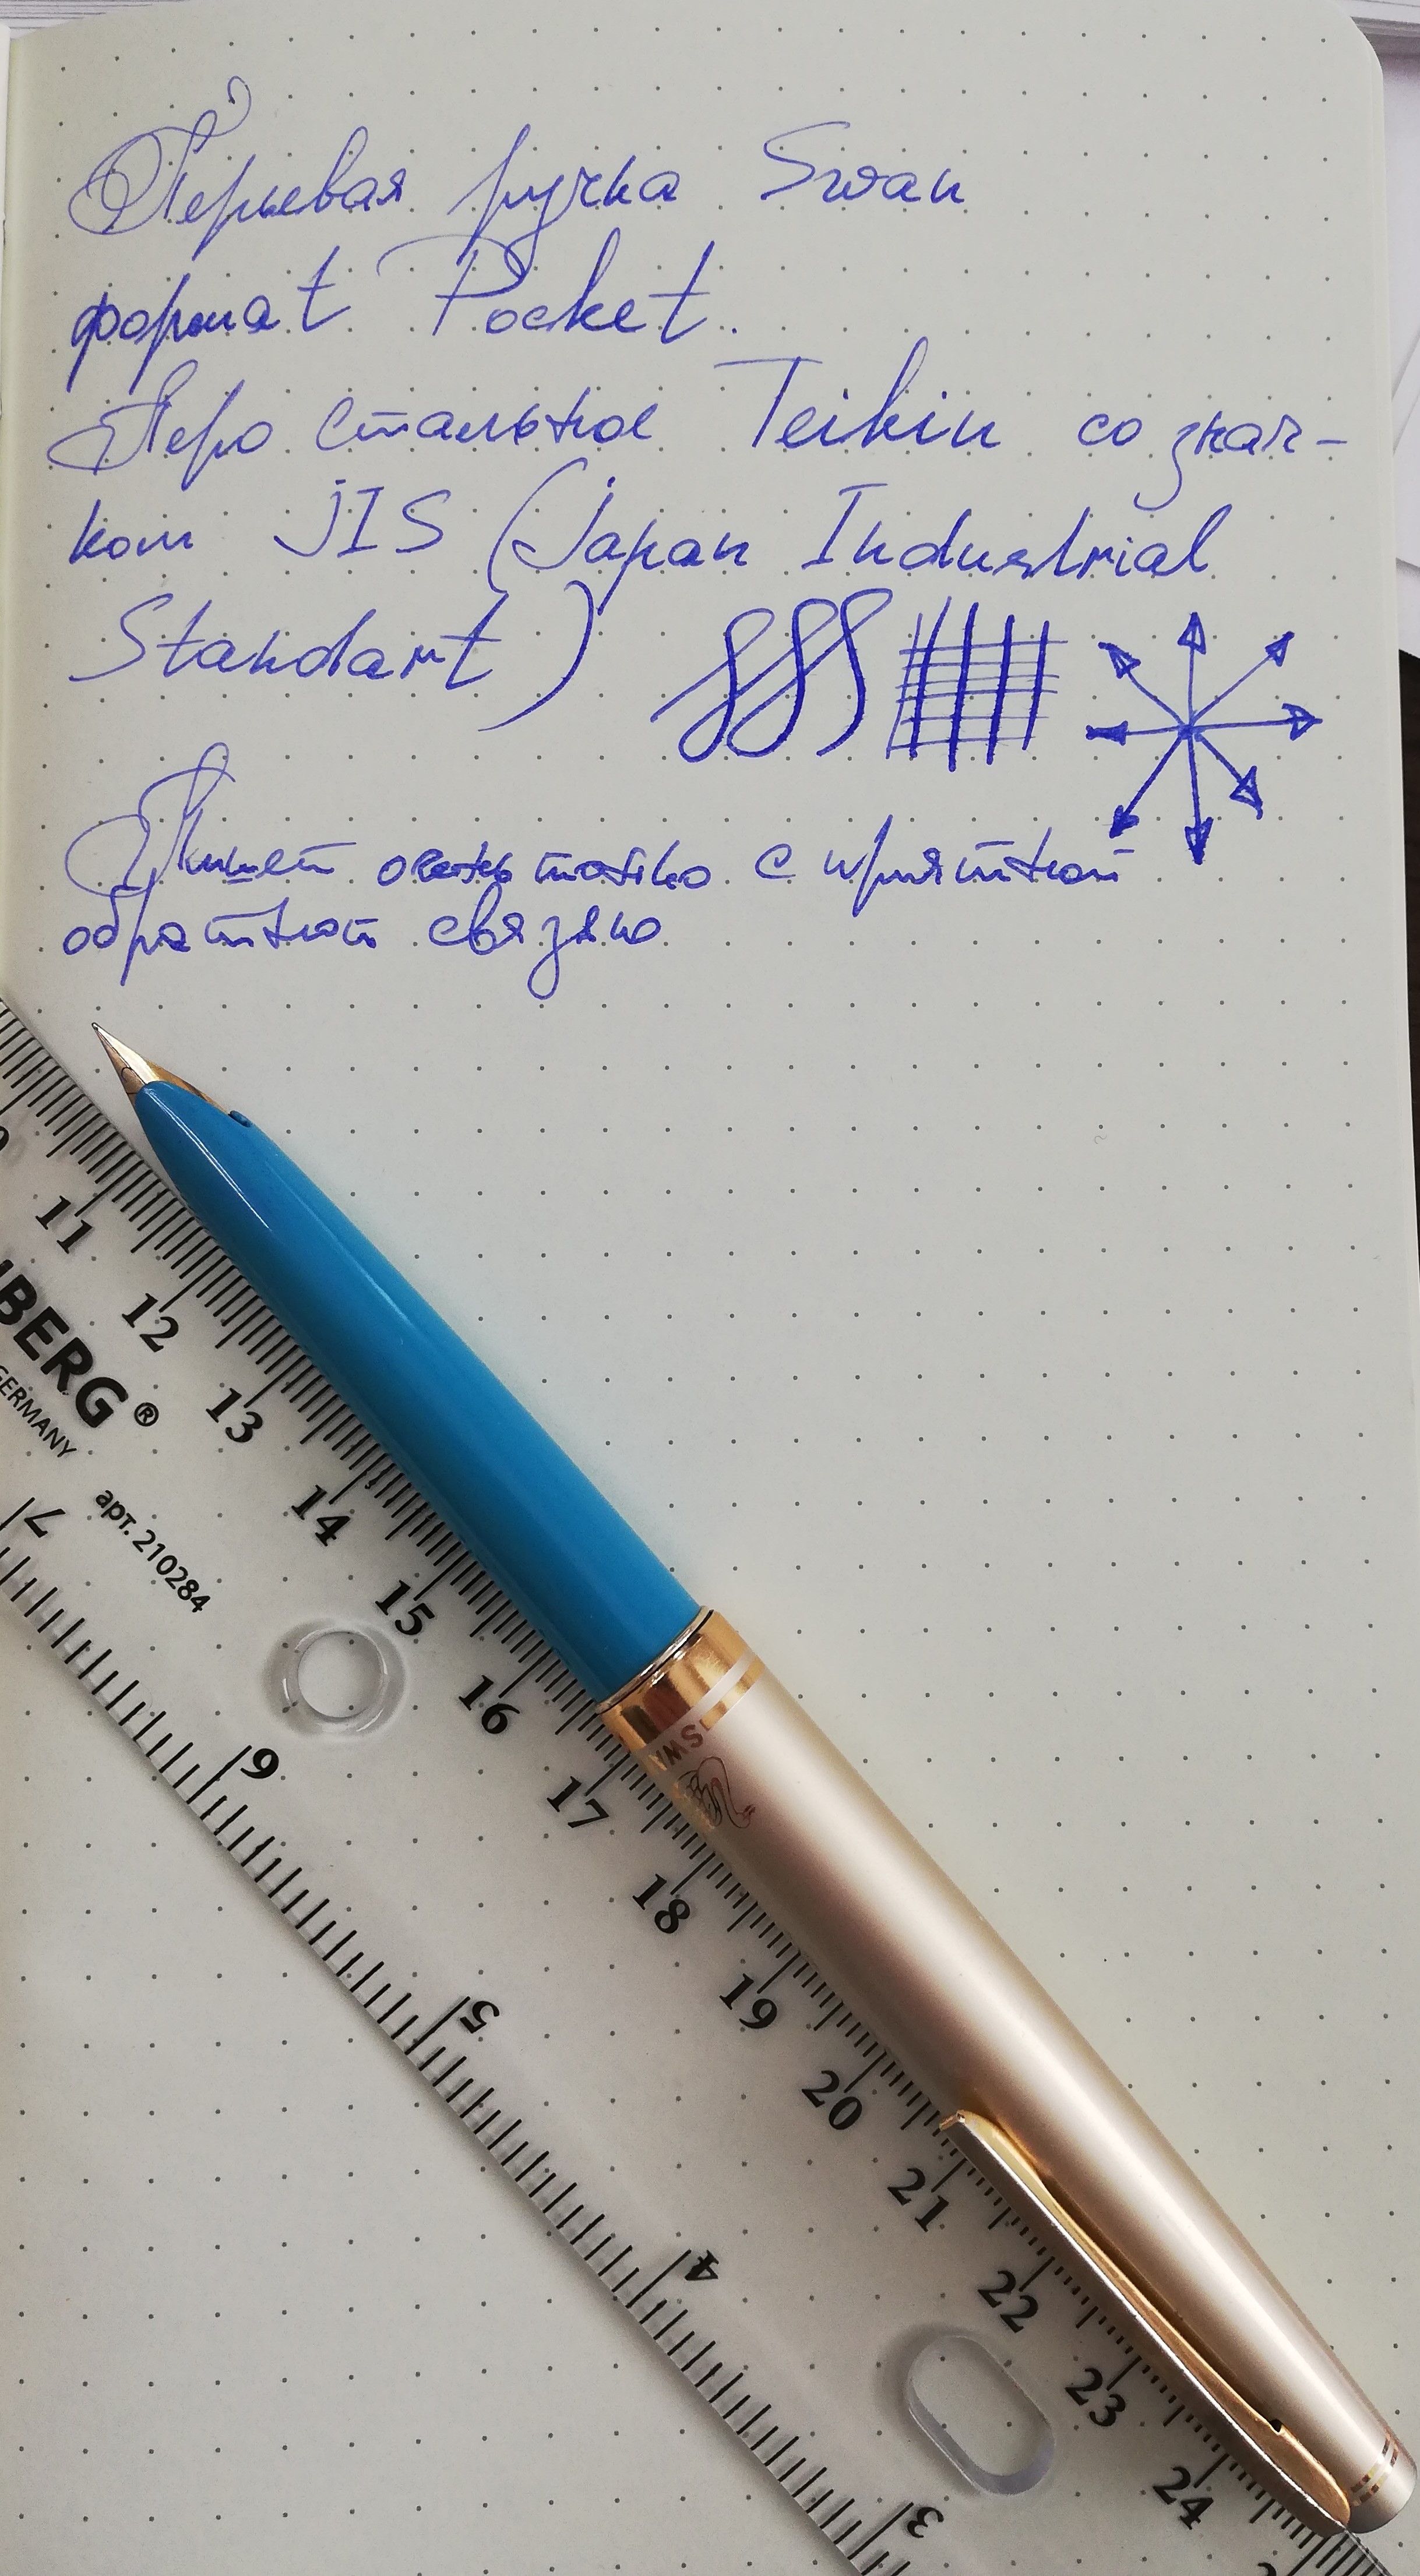 Перьевая ручка Swan
формат Pocket.
Перо стальное Teikin со знач-
ком JIS (Japan Industrial
Standart)
Пишет очень тонко с приятной
обратной связью
11
12
13
14
15
16
17
18
19
20
21
22
23
24
BERG®
GERMANY
арт. 210284
7
6
5
4
3
SWA